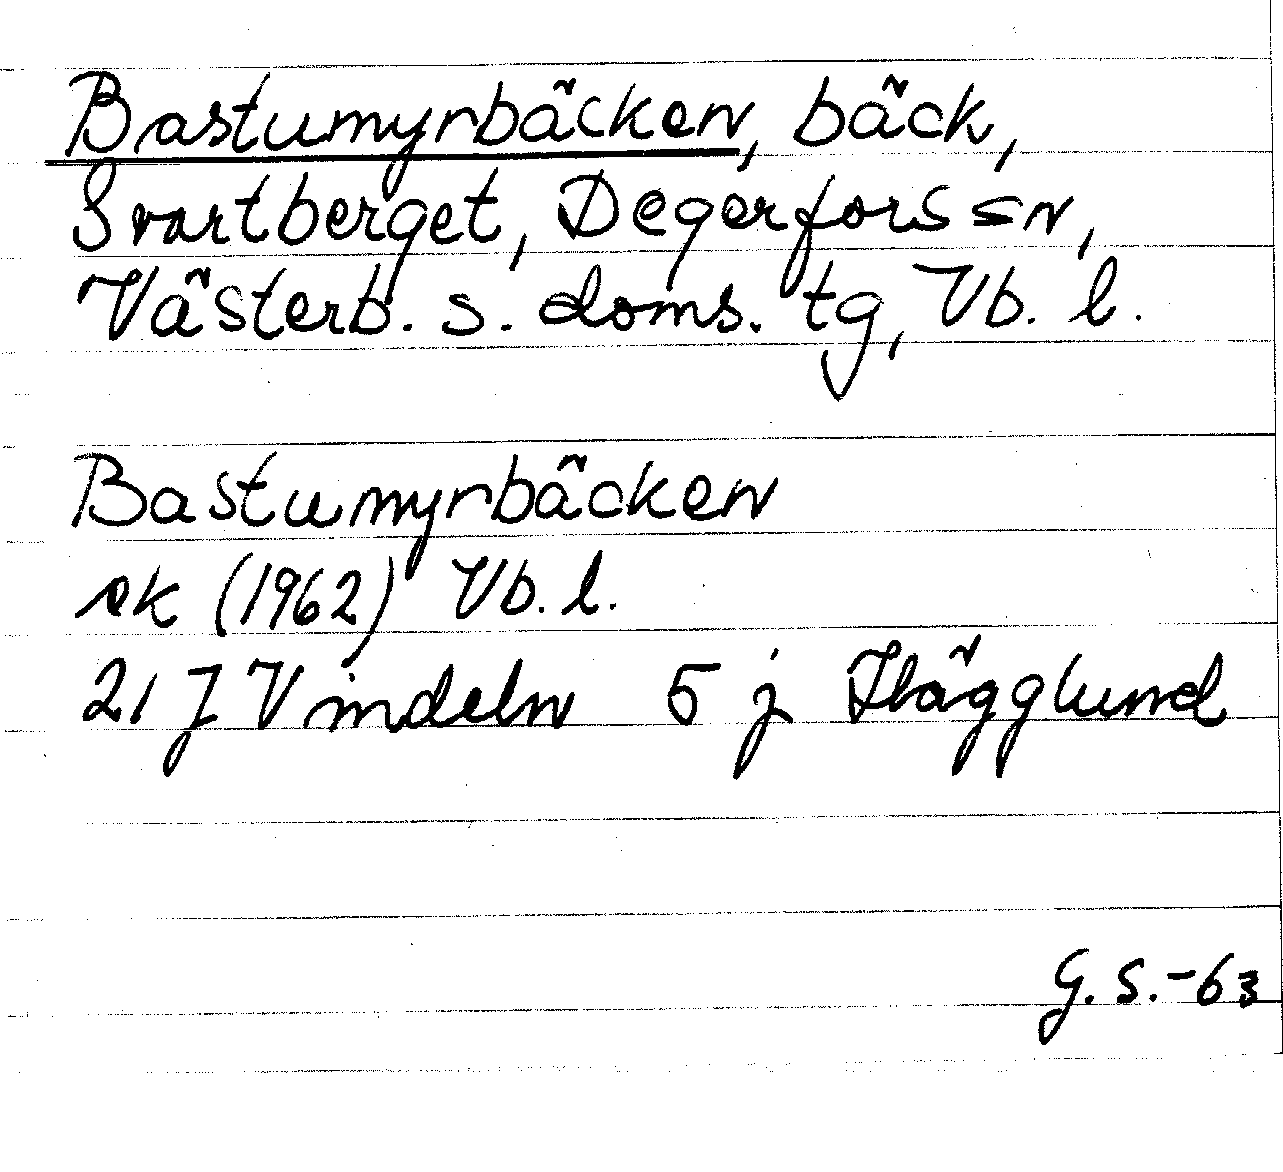 Bastumyrbäcken, bäck,
Svartberget, Degerfors sn,
Västerb. s. doms. tg, Vb. l.
Bastumyrbäcken
ek (1962) Vb. l.
21 J Vindeln 5 j Hägglund
G. S. -63